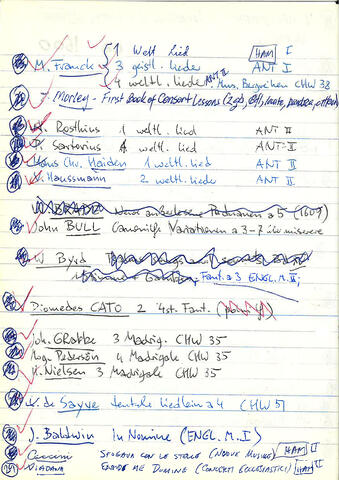 1 Welt Lied HAM I
M. Franck 3 geistl. lieder ANT I
4 weltl. lieder ANT II Mus. Bergreihen CHW 38
T. Morley - First Book of Consort Lessons (2 gb, Bfl, laute, pandora,
Rosthius 1 weltl. lied ANT II
P. Sartorius 4 weltl. lied ANT I
Hans Chr. Haiden 1 weltl. lied ANT II
V. Haussmann 2 weltl. lieder ANT II
W. BRADE Neue Paduanen a 5 (1609)
John BULL Canonische Variationen a 3-7 üb. miserere
W. Byrd
Fant. a 3 ENGL. M. II;
Diomedes CATO 2 4st. Fant.
Joh. GRabbe 3 Madrig. CHW 35
Mog. Pedersön 4 Madrigale CHW 35
H. Nielsen 3 Madrigale CHW 35
L. de Sayve teutsche liedlein a 4 (CHW 51)
J. Baldwin In Nomine (ENGL. M. I)
Caccini SFOGAVA CON LE STELLE (NUOVE MUSICHE) HAM II
VIADANA EXAUDI ME DOMINE (CONCERTI ECCLESIASTICI) HAM II